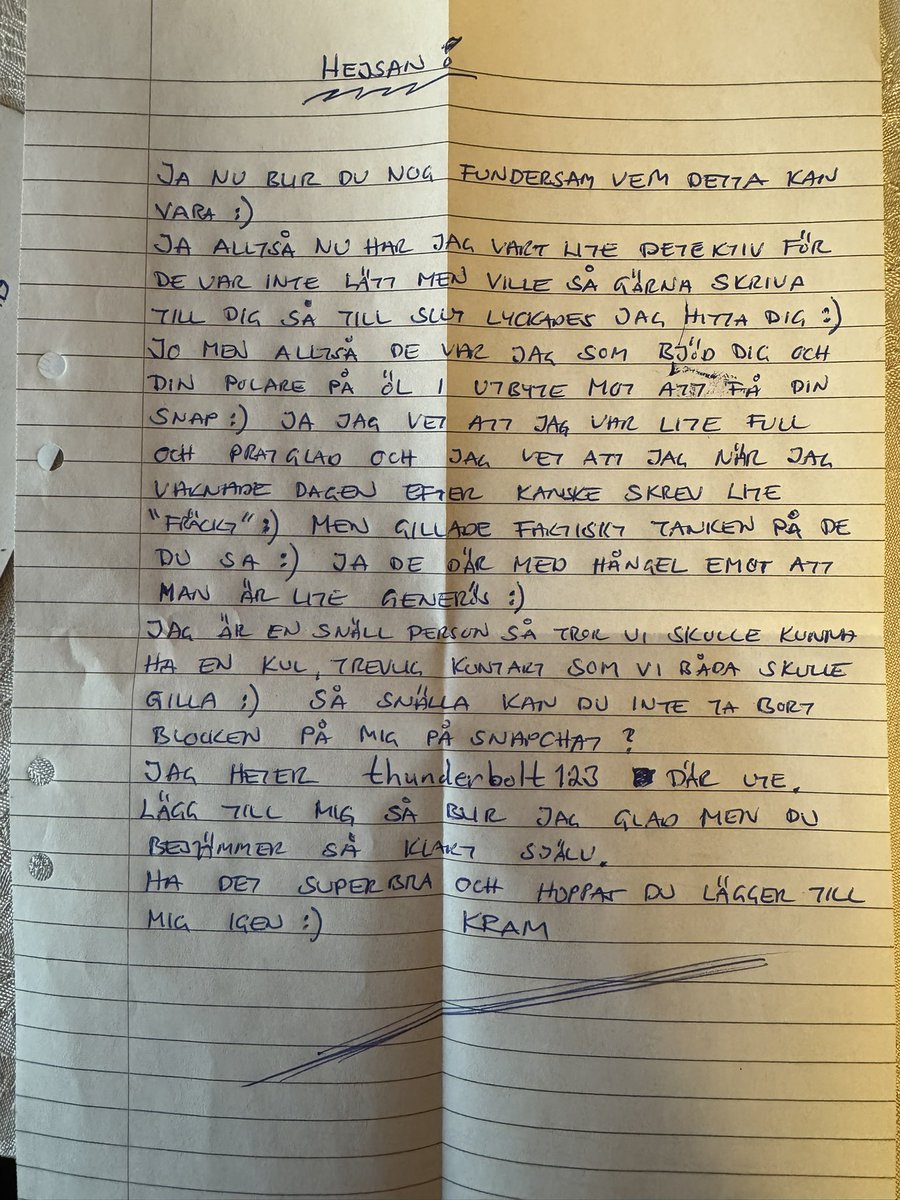 HEJSAN !
JA NU BLIR DU NOG FUNDERSAM VEM DETTA KAN
VARA :)
JA ALLTSÅ NU HAR JAG VART LITE DETEKTIV FÖR
DE VAR INTE LÄTT MEN VILLE SÅ GÄRNA SKRIVA
TILL DIG SÅ TILL SLUT LYCKADES JAG HITTA DIG :)
JO MEN ALLTSÅ DE VAR JAG SOM BJÖD DIG OCH
DIN POLARE PÅ ÖL I UTBYTE MOT ATT FÅ DIN
SNAP :) JA JAG VET ATT JAG VAR LITE FULL
OCH PRATGLAD OCH JAG VET ATT JAG NÄR JAG
VAKNADE DAGEN EFTER KANSKE SKREV LITE
"FRÄCKT" :) MEN GILLADE FAKTISKT TANKEN PÅ DE
DU SA :) JA DE DÄR MED HÅNGEL EMOT ATT
MAN ÄR LITE GENERÖS :)
JAG ÄR EN SNÄLL PERSON SÅ TROR VI SKULLE KUNNA
HA EN KUL, TREVLIG KONTAKT SOM VI BÅDA SKULLE
GILLA :) SÅ SNÄLLA KAN DU INTE TA BORT
BLOCKEN PÅ MIG PÅ SNAPCHAT ?
JAG HETER thunderbolt123 DÄR UTE.
LÄGG TILL MIG SÅ BLIR JAG GLAD MEN DU
BESTÄMMER SÅ KLART SJÄLV.
HA DET SUPERBRA OCH HOPPAS DU LÄGGER TILL
MIG IGEN :) KRAM